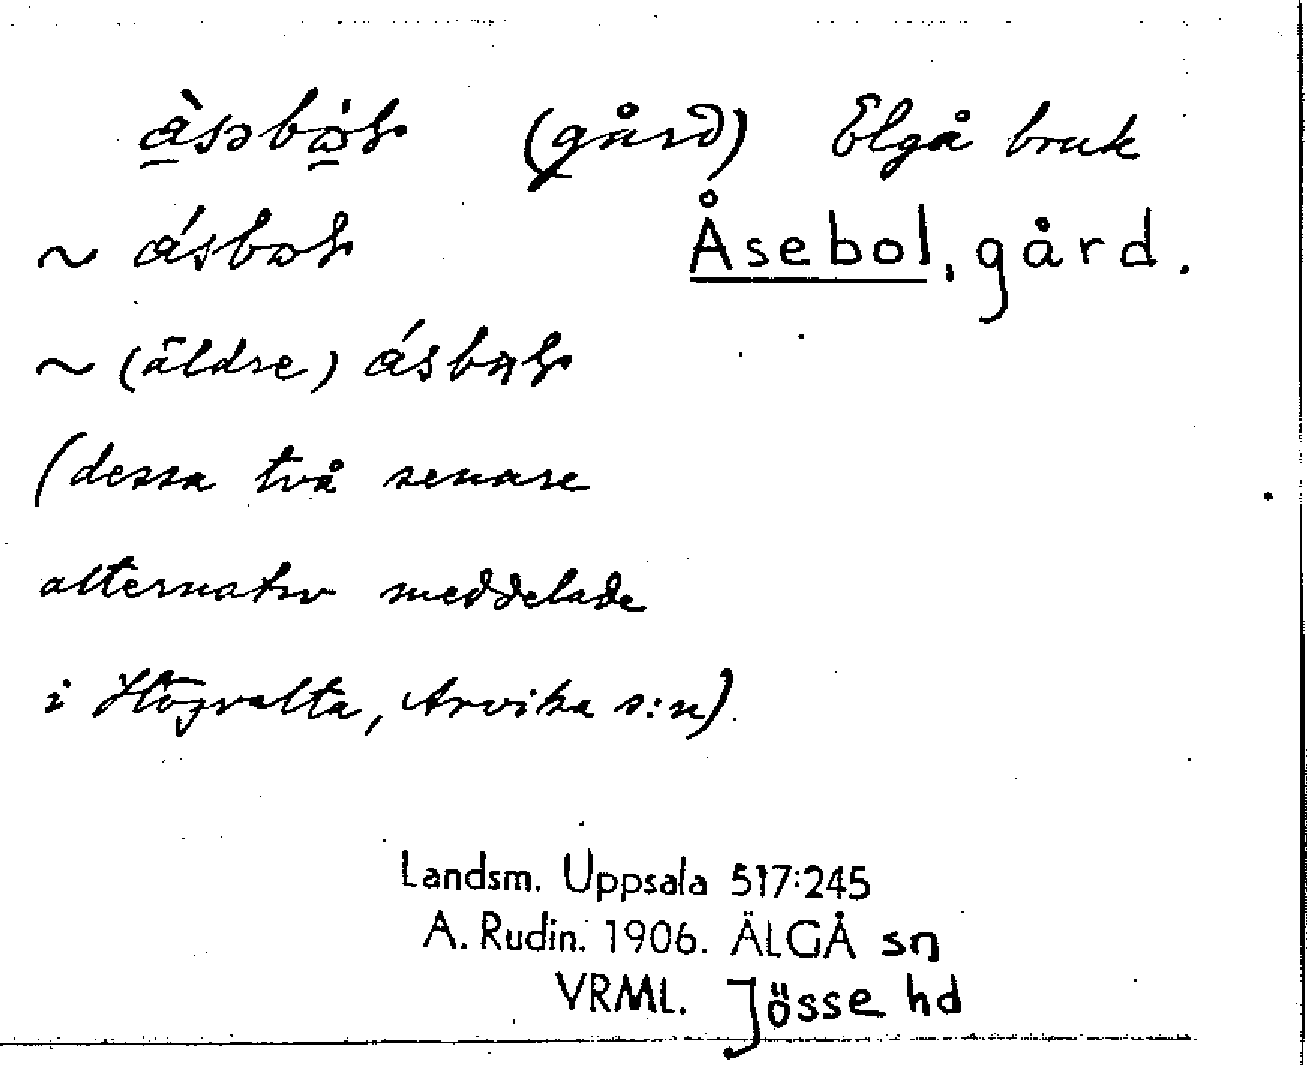 (gård) Elgå bruk
~ Åsebol, gård.
~ (äldre)
(dessa två senare
alternativ meddelade
i Högvalta, Arvika s:n)
Landsm. Uppsala 517:245
A. Rudin. 1906. ÄLGÅ sn
VRML. Jösse hd